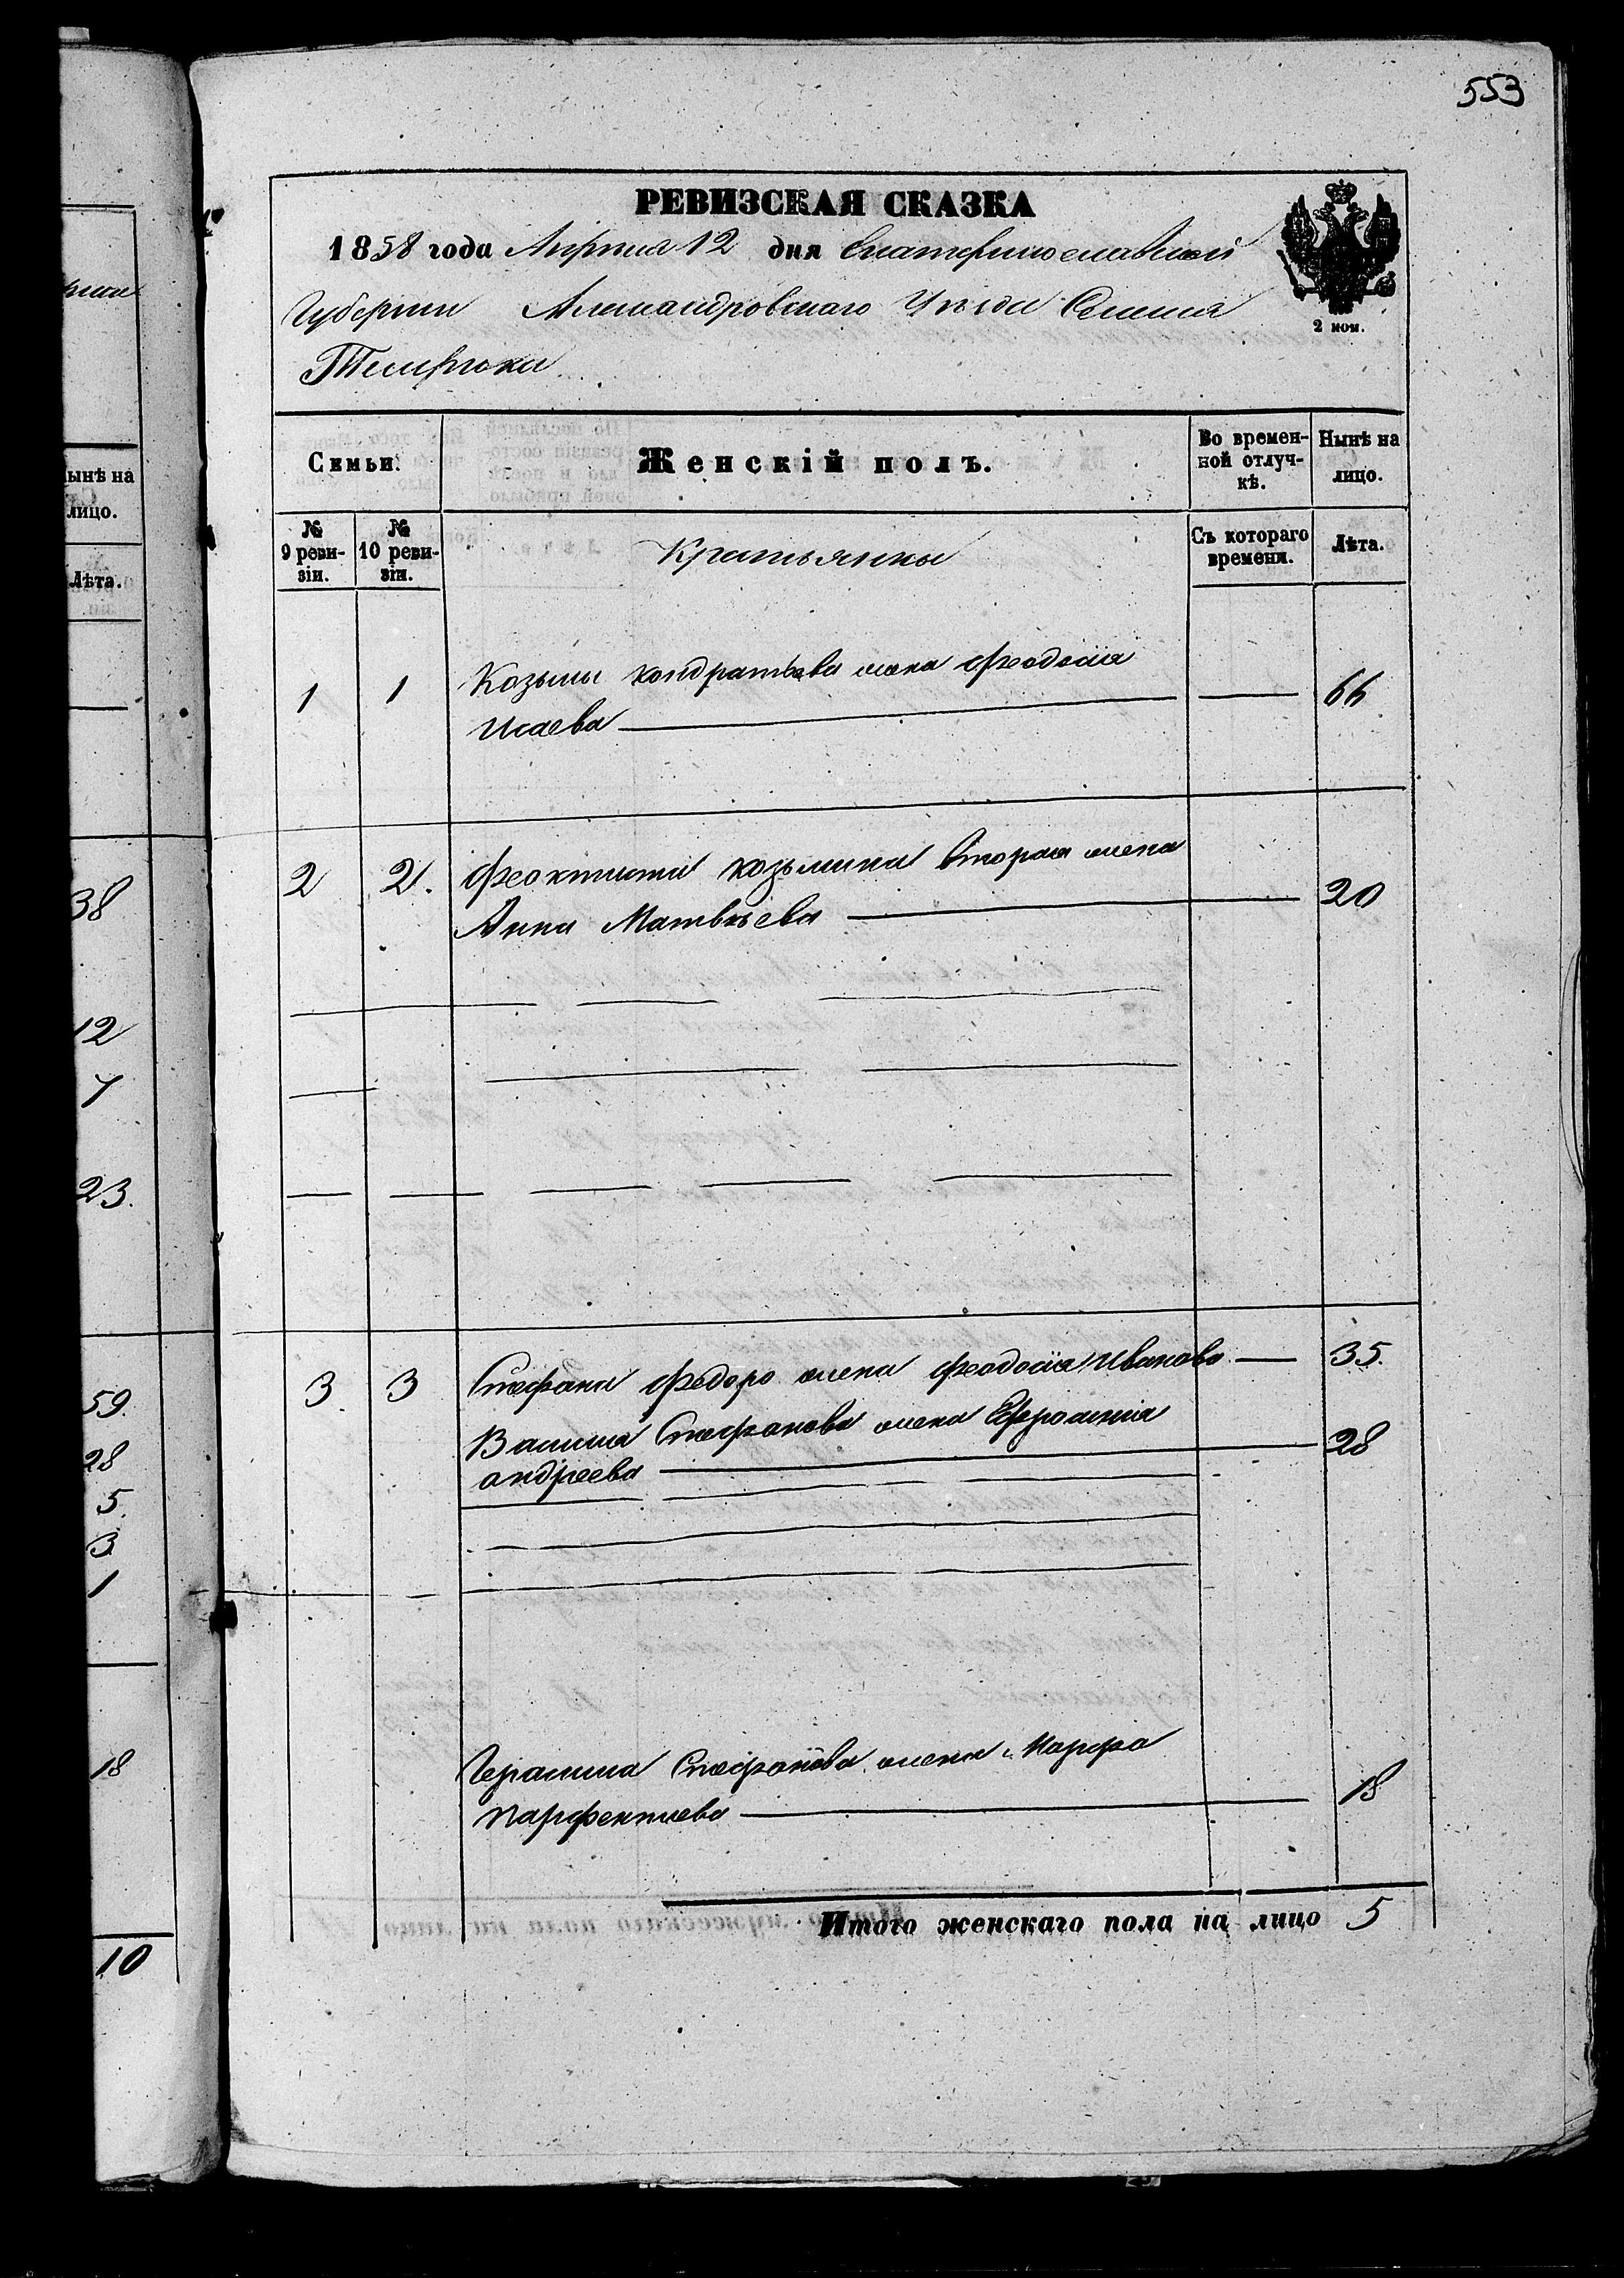 553
РЕВИЗСКАЯ СКАЗКА
1858 года Апреля 12 дня Екатеринославской
Губернии Александровского Уѣзда Селения
Темрюка
2 коп.
Семьи.
Женскій полъ.
Во времен-
ной отлуч-
кѣ.
Нынѣ на
лицо.
№
9 реви-
зіи.
№
10 реви-
зіи.
Крестьянки
Съ котораго
времени.
Лѣта.
1 1 Козьмы Кондратьева жена Феодосія
Исаева 66
2 2. Феоктиста Козьмина вторая жена
Анна Матвѣева 20
3. 3 Стефана Федоро жена Феодосия Иванова 35.
Василия Стефанова жена Ефросиния
андреева 28
Герасима Стефанова жена Марфа
Парфентиева 18
Итого женскаго пола на лицо 5
ынѣ на
лицо.
Лѣта.
38
12
7
23.
59.
28
5.
3
1
18
10